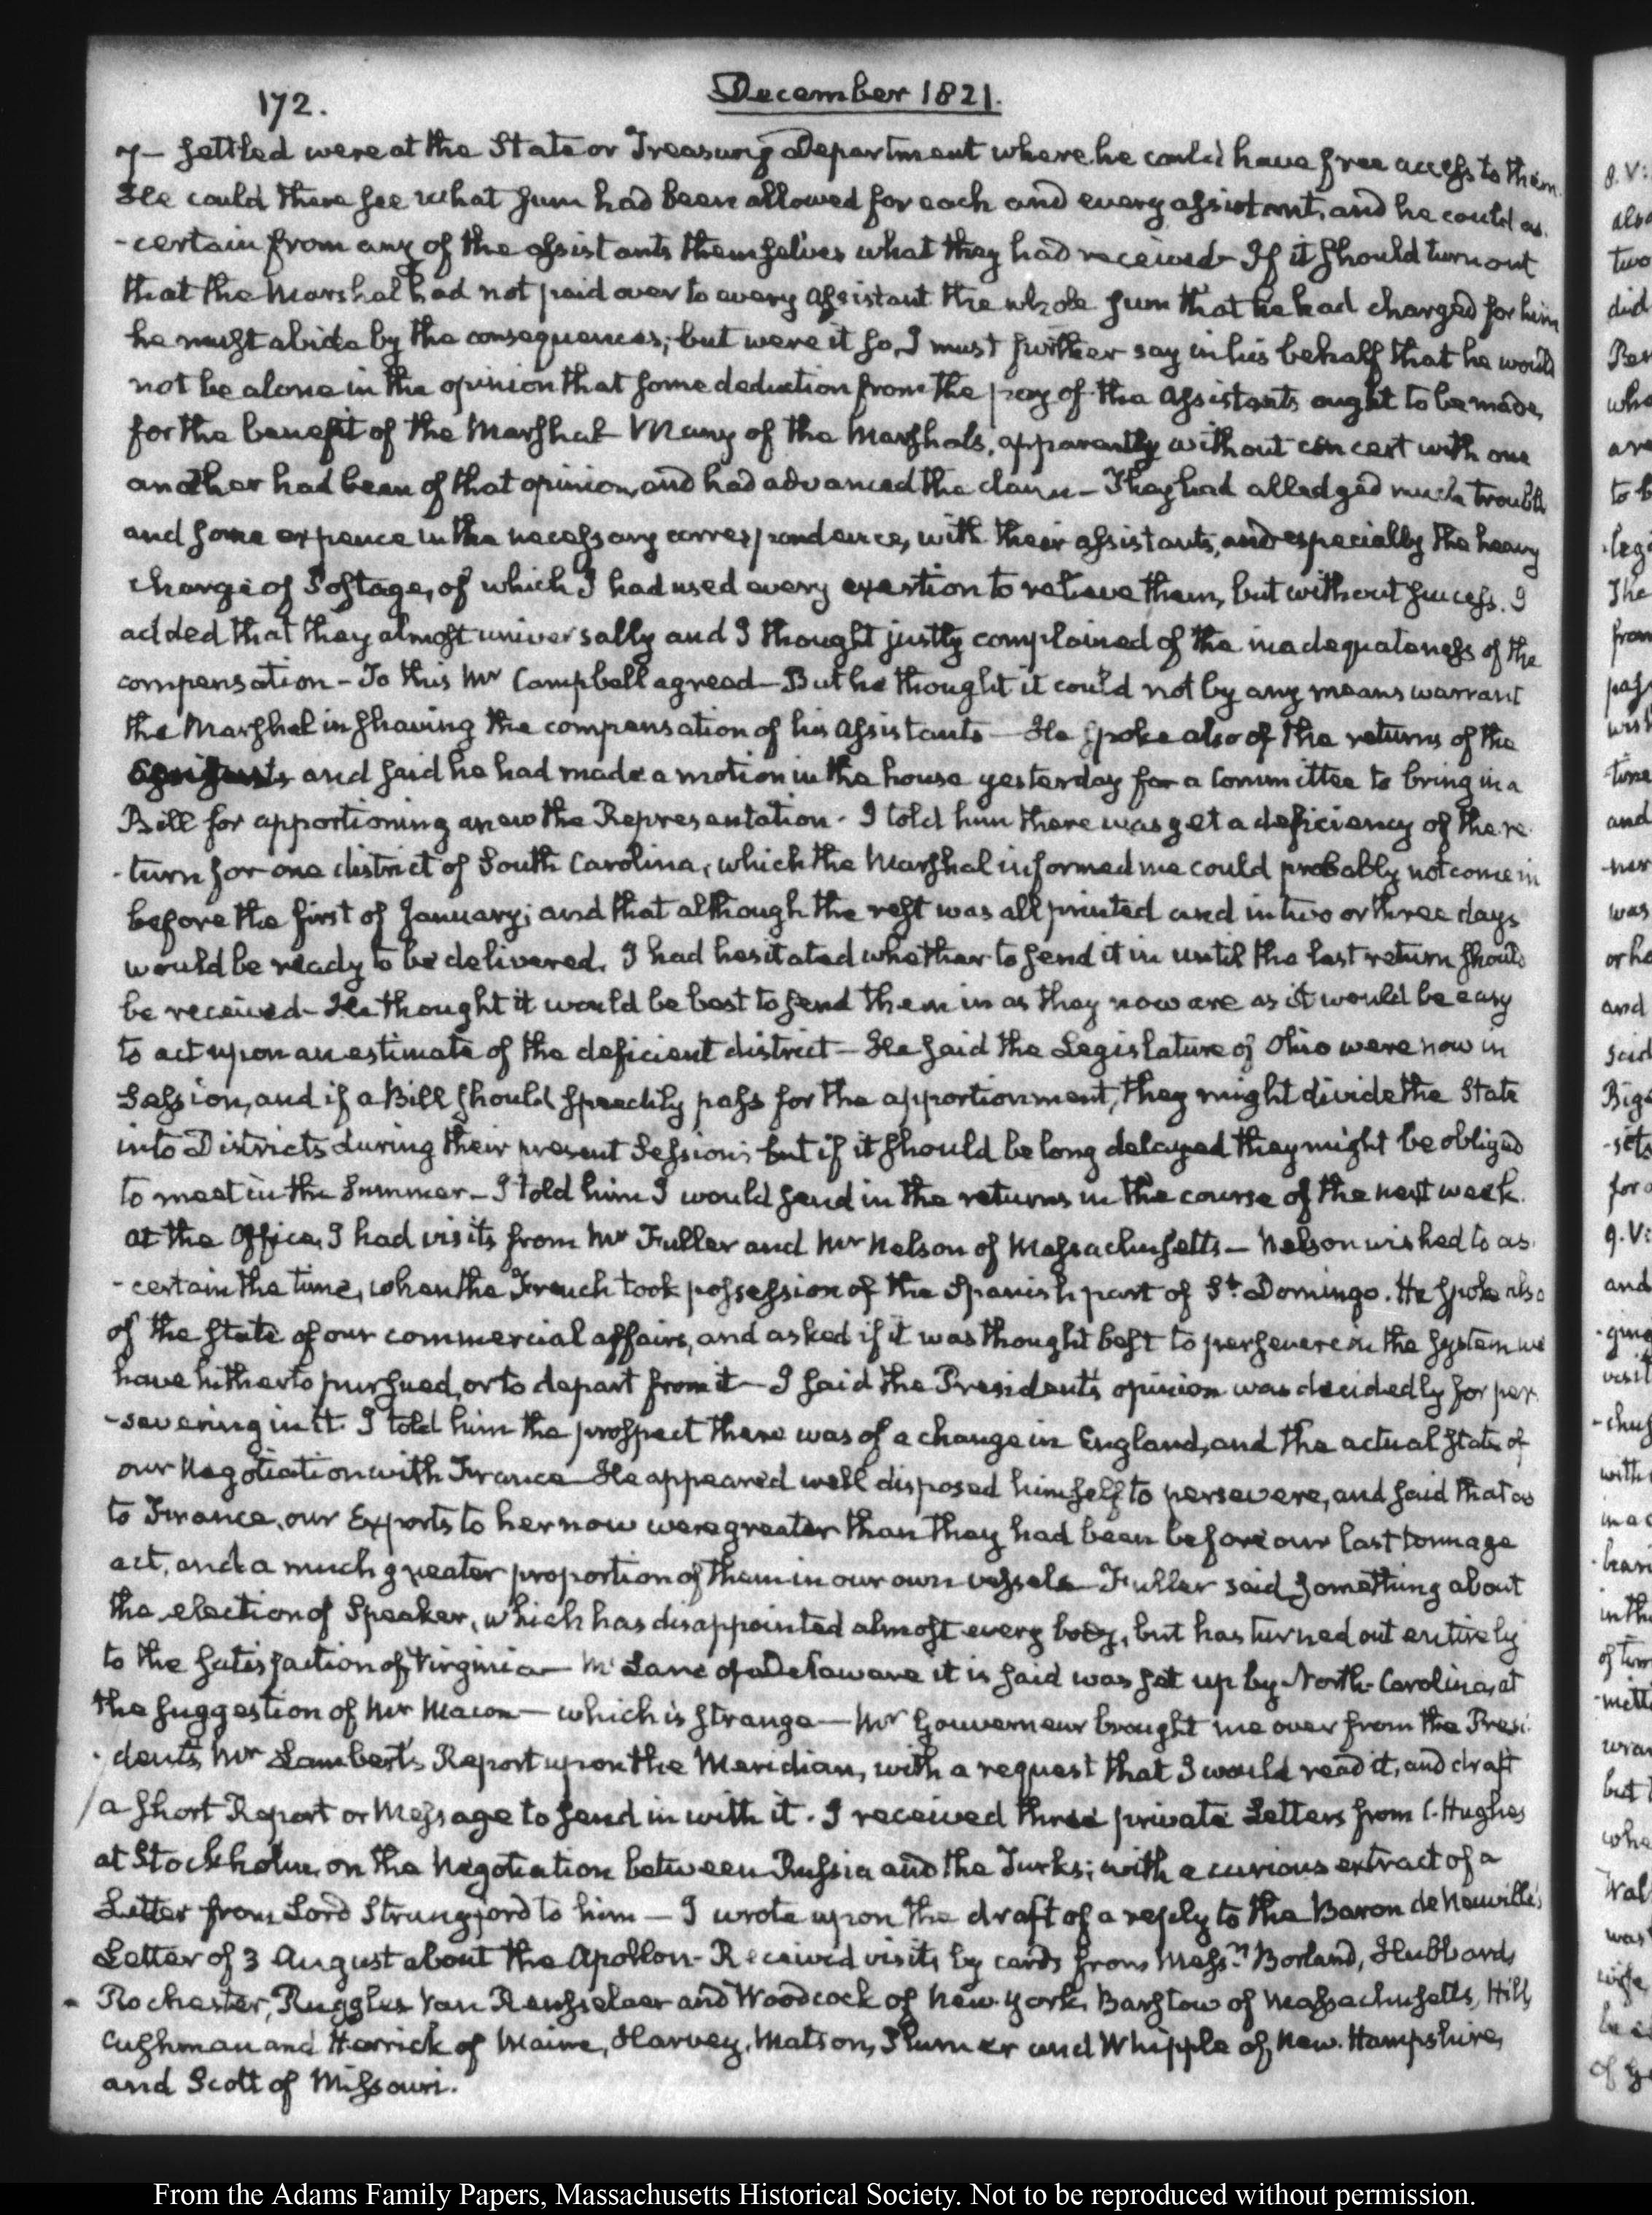 172.
December 1821.
7— settled were at the State or Treasury Department where he could have free access to them.
He could there see what sum had been allowed for each and every assistant, and he could as-
-certain from any of the assistants themselves what they had received. If it should turn out
that the Marshal had not paid over to every assistant the whole sum that he had charged for him
he must abide by the consequences; but were it so, I must further say in his behalf that he would
not be alone in the opinion that some deduction from the pay of the Assistants ought to be made,
for the benefit of the Marshal— Many of the Marshals, apparently without concert with one
another had been of that opinion, and had advanced the claim— They had alledged much trouble
and some expence in the necessary correspondence, with their assistants, and especially the heavy
charge of Postage, of which I had used every exertion to relieve them, but without success. I
added that they almost universally and I thought justly complained of the inadequateness of the
compensation— To this Mr Campbell agreed— But he thought it could not by any means warrant
the Marshal in shaving the compensation of his Assistants— He spoke also of the returns of the
and said he had made a motion in the house yesterday for a Committee to bring in a
Bill for apportioning anew the Representation. I told him there was yet a deficiency of the re-
-turn for one district of South Carolina, which the Marshal informed me could probably not come in
before the first of January; and that although the rest was all printed and in two or three days
would be ready to be delivered, I had hesitated whether to send it in until the last return should
be received— He thought it would be best to send them in as they now are as it would be easy
to act upon an estimate of the deficient district— He said the Legislature of Ohio were now in
Session, and if a Bill should speedily pass for the apportionment, they might divide the State
into Districts during their present Session; but if it should be long delayed they might be obliged
to meet in the Summer— I told him I would send in the returns in the course of the next week.
At the Office, I had visits from Mr Fuller and Mr Nelson of Massachusetts— Nelson wished to as-
-certain the time, when the French took possession of the Spanish part of St. Domingo. He spoke also
of the state of our commercial affairs, and asked if it was thought best to persevere in the system we
have hitherto pursued, or to depart from it— I said the President's opinion was decidedly for per-
-severing in it. I told him the prospect there was of a change in England, and the actual state of
our Negotiation with France— He appeared well disposed himself to persevere, and said that as
to France, our Exports to her now were greater than they had been before our last tonnage
act, and a much greater proportion of them in our own vessels— Fuller said something about
the election of Speaker, which has disappointed almost every body, but has turned out entirely
to the satisfaction of Virginia— McLane of Delaware it is said was set up by North-Carolina, at
the suggestion of Mr Macon— which is strange— Mr Gouverneur brought me over from the Presi-
-dent's Mr Lambert's Report upon the Meridian, with a request that I would read it, and draft
a short Report or Message to send in with it. I received three private Letters from C. Hughes
at Stockholm, on the Negotiation between Russia and the Turks; with a curious extract of a
Letter from Lord Strangford to him— I wrote upon the draft of a reply to the Baron de Neuville's
Letter of 3 August about the Apollon— Received visits by cards from Messrs Borland, Hubbard,
Rochester, Ruggles Van Rensselaer and Woodcock of New York, Barstow of Massachusetts, Hill,
Cushman and Herrick of Maine, Harvey, Matson, Plumer and Whipple of New-Hampshire,
and Scott of Missouri.
From the Adams Family Papers, Massachusetts Historical Society. Not to be reproduced without permission.